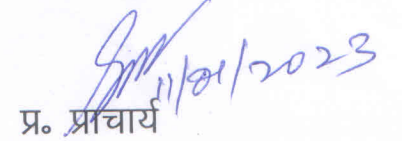 11/01/2023
प्र॰ प्राचार्य